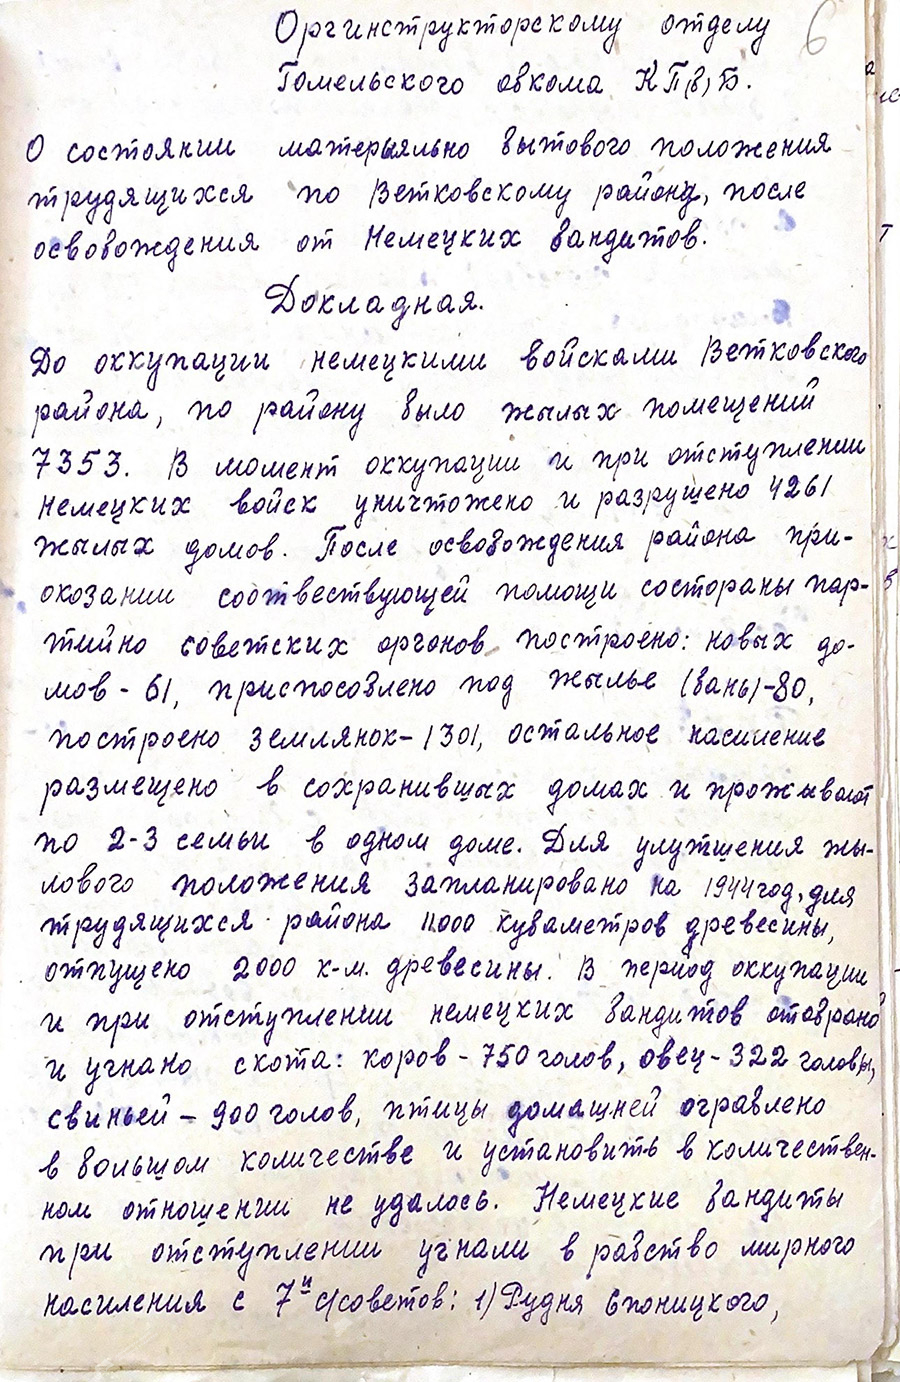 Оргинструкторскому отделу
6
Гомельского обкома КП(б)Б.
О состоянии матерыяльно бытового положения
трудящихся по Ветковскому району, после
освобождения от Немецких бандитов.
Докладная.
До оккупации немецкими войсками Ветковского
района, по району было жылых помещений
7353. В момент оккупации и при отступлении
немецких войск уничтожено и разрушено 4261
жылых домов. После освобождения района при-
оказании соотвествующей помощи состораны пар-
тийно советских органов построено: новых до-
мов - 61, приспособлено под жылье (бань) - 80,
построено землянок - 1301, остальное насиление
размещено в сохранившых домах и проживают
по 2-3 семьи в одном доме. Для улутшения жы-
лового положения запланировано на 1944 год, для
трудящихся района 11.000 кубаметров древесины,
отпущено 2000 к-м. древесины. В период оккупации
и при отступлении немецких бандитов отабрано
и угнано скота: коров - 750 голов, овец - 322 головы,
свиньей - 900 голов, птицы домашней ограблено
в большом количестве и установить в количествен-
ном отношении не удалось. Немецкие бандиты
при отступлении угнали в рабство мирного
насиления с 7и с/советов: 1) Рудня